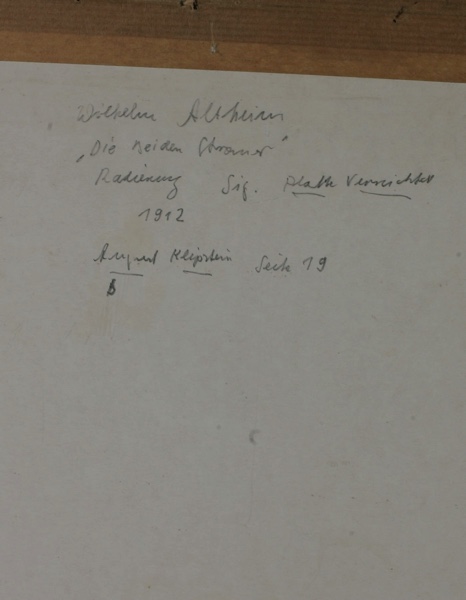 Wilhelm Altheim
„Die beiden Stromer"
Radierung Sig. Platte Vernichtet
1912
August Klipstein Seite 19